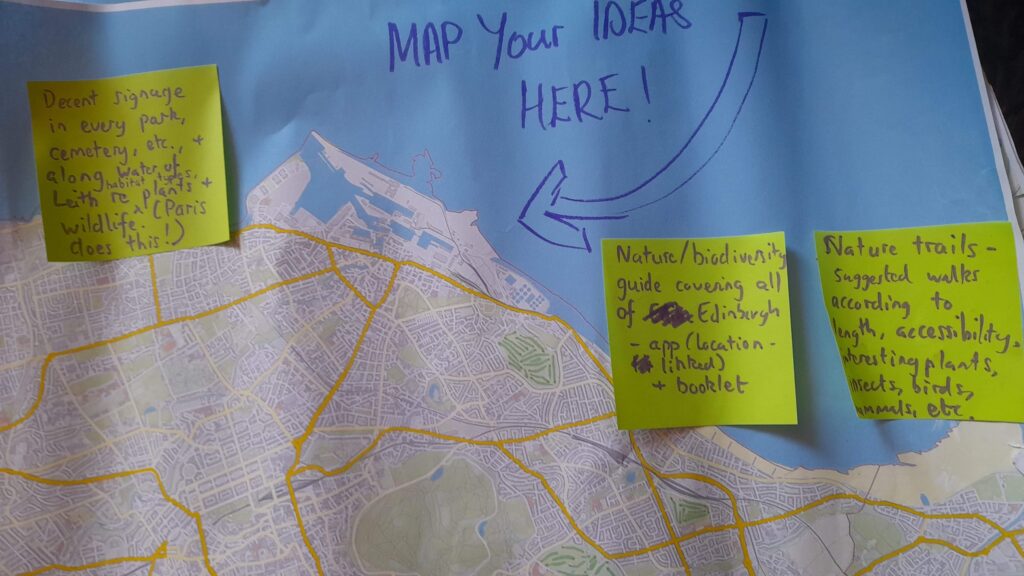 MAP Your IDEAS
HERE!
Decent signage
in every park,
cemetery, etc., +
along Water of
habitat types,
Leith re plants +
wildlife. (Paris
does this!)
Nature/biodiversity
guide covering all
of Edinburgh
- app (location-
linked)
+ booklet
Nature trails -
suggested walks
according to
length, accessibility,
interesting plants,
insects, birds,
mammals, etc.